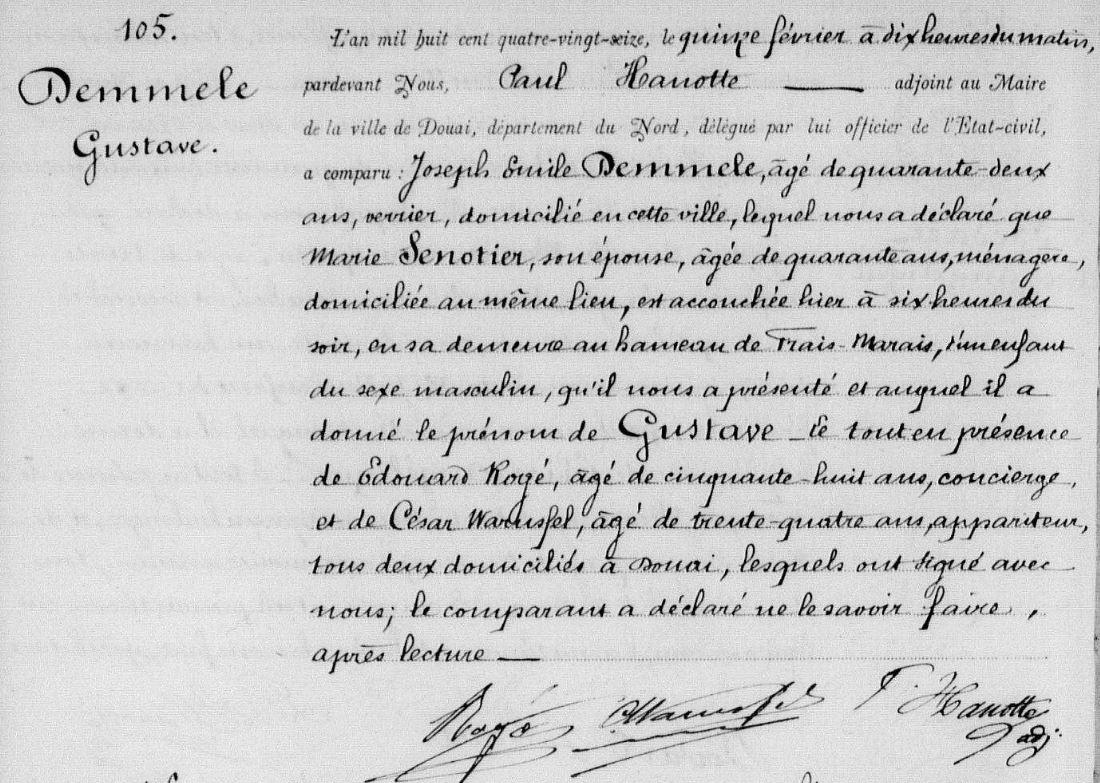 105.
Demmele
Gustave.
L'an mil huit cent quatre-vingt-seize, le quinze février à dix heures du matin,
pardevant Nous, Paul Hanotte — adjoint au Maire
de la ville de Douai, département du Nord, délégué par lui officier de l'Etat-civil,
a comparu : Joseph Emile Demmele, âgé de quarante-deux
ans, verrier, domicilié en cette ville, lequel nous a déclaré que
Marie Senotier, son épouse, âgée de quarante ans, ménagère,
domiciliée au même lieu, est accouchée hier à six heures du
soir, en sa demeure au hameau de Frais-Marais, d'un enfant
du sexe masculin, qu'il nous a présenté et auquel il a
donné le prénom de Gustave _ Le tout en présence
de Edouard Rogé, âgé de cinquante-huit ans, concierge,
et de César Warusfel, âgé de trente-quatre ans, appariteur,
tous deux domiciliés à Douai, lesquels ont signé avec
nous; le comparant a déclaré ne le savoir faire,
après lecture —
Rogé CWarusfel P. Hanotte
adj.